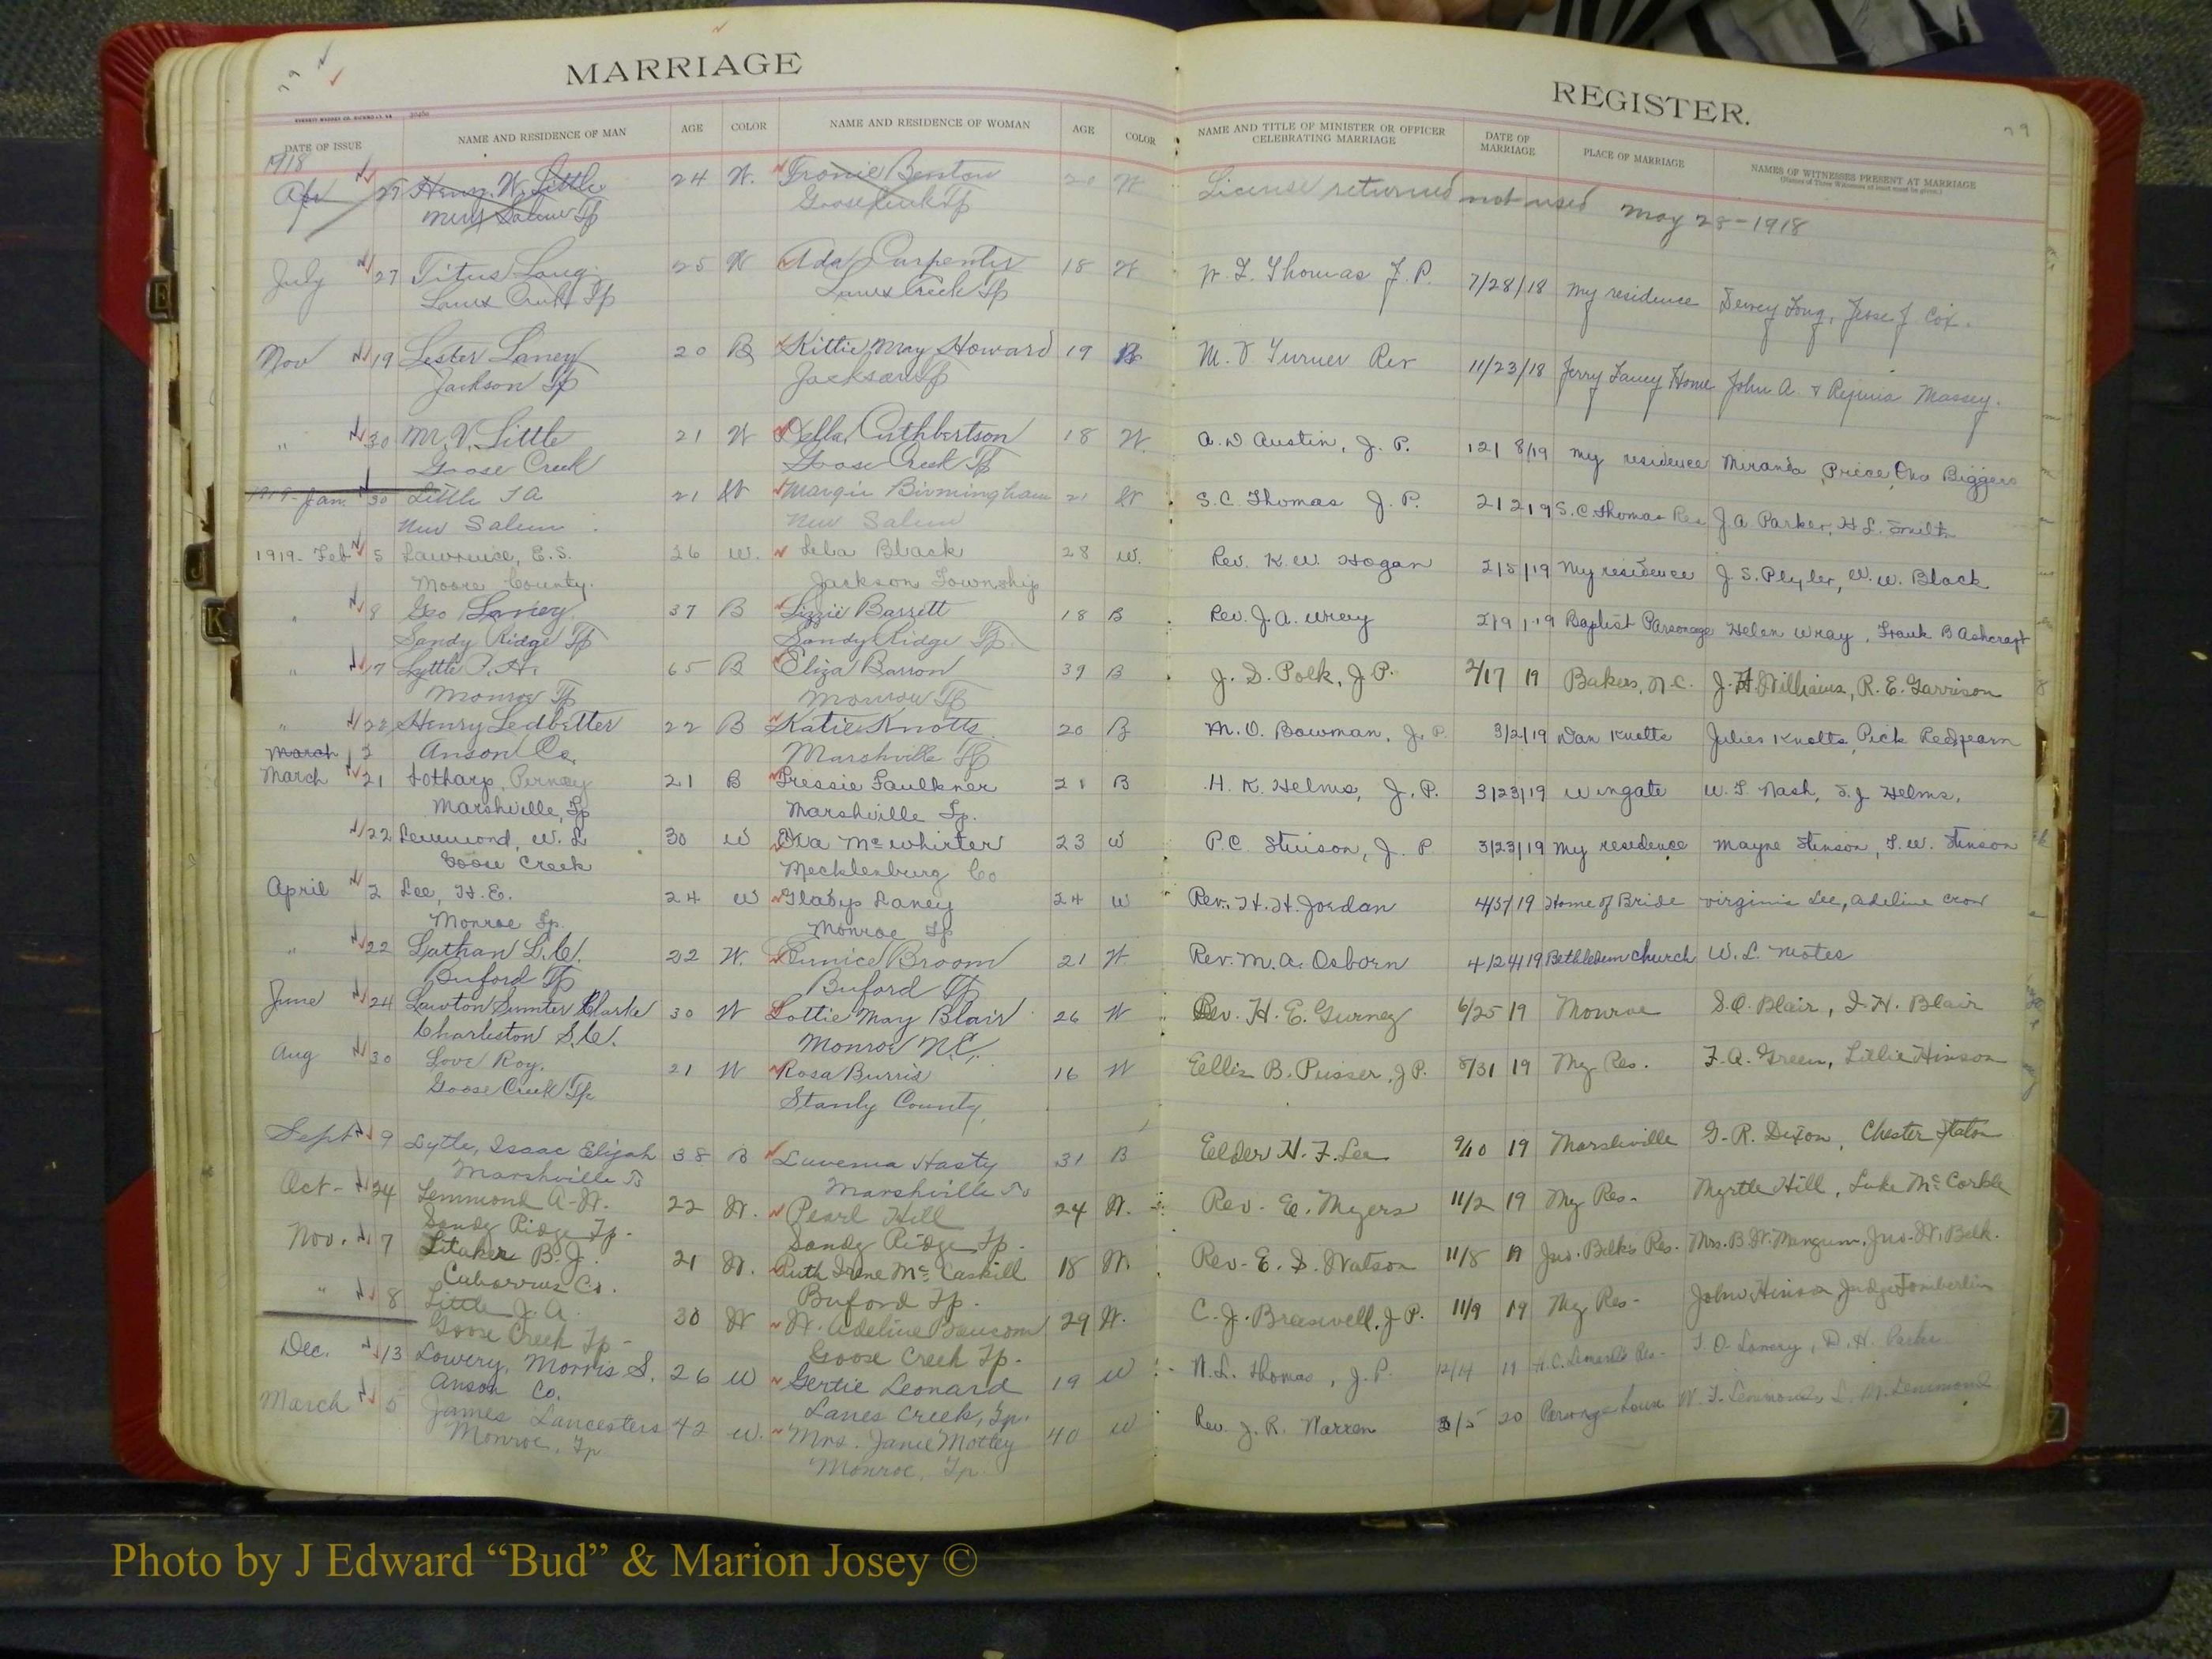 MARRIAGE
REGISTER.
79
DATE OF ISSUE NAME AND RESIDENCE OF MAN AGE COLOR NAME AND RESIDENCE OF WOMAN AGE COLOR NAME AND TITLE OF MINISTER OR OFFICER CELEBRATING MARRIAGE DATE OF MARRIAGE PLACE OF MARRIAGE NAMES OF WITNESSES PRESENT AT MARRIAGE
1918
Apr 27 Henry W. Little 24 W. Fronie Benton 20 W License returned not used May 28-1918
New Salem Tp Goose Creek Tp
July 27 Titus Long 25 W Ada Carpenter 18 W W. L. Thomas J. P. 7/28/18 my residence Dewey Long, Jesse J Cox.
Lanes Creek Tp Lanes Creek Tp
Nov 19 Lester Laney 20 B Kittie May Howard 19 B M. V. Turner Rev 11/23/18 Jerry Laney Home John A. & Massey.
Jackson Tp Jackson Tp
" 30 M. V. Little 21 W Della Cuthbertson 18 W. A. D Austin, J. P. 12/8/19 my residence Miranda Price, Ona Biggers
Goose Creek Goose Creek Tp
1919- Jan. 30 Little I A 21 W Margie Birmingham 21 W S. C. Thomas J. P. 2/2/19 S. C. Thomas Res J A Parker, H. L.
New Salem New Salem
1919- Feb 5 Lawrence, E. S. 26 W. Lela Black 28 W. Rev. K. W. Hogan 2/5/19 My residence J S. Plyler, W. W. Black
Moore County. Jackson Township
" 8 Geo Laney 37 B Lizzie Barrett 18 B Rev. J. A. Wray 2/9/19 Baptist Parsonage Helen Wray, Frank B Ashcraft
Sandy Ridge Tp Sandy Ridge Tp.
" 17 Lyttle P. A. 65 B Eliza Barron 39 B J. D. Polk, J P. 2/17 19 Bakers, N. C. J. H. Williams, R. E. Garrison
Monroe Tp Monroe Tp
" 28 Henry Ledbetter 22 B Katie Knotts 20 B M. O. Bowman, J. P. 3/2/19 Dan Knotts Julies Knotts, Pick Redfearn
March 3 Anson Co. Marshville Tp
March 21 Lotharp, Pinney 21 B Pressie Faulkner 21 B H. K. Helms, J. P. 3/23/19 Wingate W. T. Nash, S. J Helms.
Marshville, Tp Marshville Tp.
22 Lemmond, W. L 30 W Eva McWhirter 23 W P. C. Stinson, J. P 3/23/19 my residence Mayne Stinson, T. W. Stinson
Goose Creek Mecklenburg Co
April 2 Lee, H. E. 24 W Gladys Laney 24 W Rev. H. H. Jordan 4/3/19 Home of Bride Virginia Lee, Adeline Crow
Monroe Tp. Monroe Tp
" 22 Lathan L. C. 22 W. Eunice Broom 21 W Rev. M. A. Osborn 4/24/19 Bethlehem church W. L. Motes
Buford Tp Buford Tp
June 24 Lawton Sumter Clarke 30 W Lottie May Blair 26 W Rev. H. E. Gurney 6/25 19 Monroe S. O. Blair, J. H. Blair
Charleston S. C. Monroe N.C.
Aug 30 Love Roy. 21 W Rosa Burris 16 W Ellis B. Pusser, J P. 8/31 19 My Res. F. A. Green, Lillie Hinson
Goose Creek Tp Stanly County,
Sept 9 Lytle, Isaac Elijah 38 B Luvenia Hasty 31 B Elder H. F. Lee 9/10 19 Marshville G. R. Dixon, Chester Staton
Marshville Tp Marshville Tp
Oct- 24 Lemmond A. W. 22 W. Pearl Hill 24 W. Rev. E. Myers 11/2 19 My Res- Myrtle Hill, Luke McCorkle
Sandy Ridge Tp. Sandy Ridge Tp.
Nov. 7 Litaker B. J. 21 W. Ruth Irene McCaskill 18 W. Rev. E. S. Watson 11/8 19 Jno. Belks Res. Mrs. B. W. Mangum, Jno. W. Belk.
Cabarrus Co. Buford Tp.
" 8 Little J. A. 30 W W. Adeline Baucom 29 W. C. J. Braswell, J P. 11/9 19 My Res- John Hinson Judge Tomberlin
Goose Creek Tp- Goose Creek Tp-
Dec. 13 Lowery, Morris S. 26 W Gertie Leonard 19 W N. L. Thomas, J. P. 12/14 19 Res- T. O. Lowery, D. H. Parker
Anson Co. Lanes Creek, Tp.
March 5 James Lancesters 42 W. Mrs. Janie Motley 40 W Rev. J. R. Warren 3/5 20 W. T. Lemmonds, Lemmond
Monroe, Tp Monroe, Tp.
E
J
K
Photo by J Edward “Bud” & Marion Josey ©